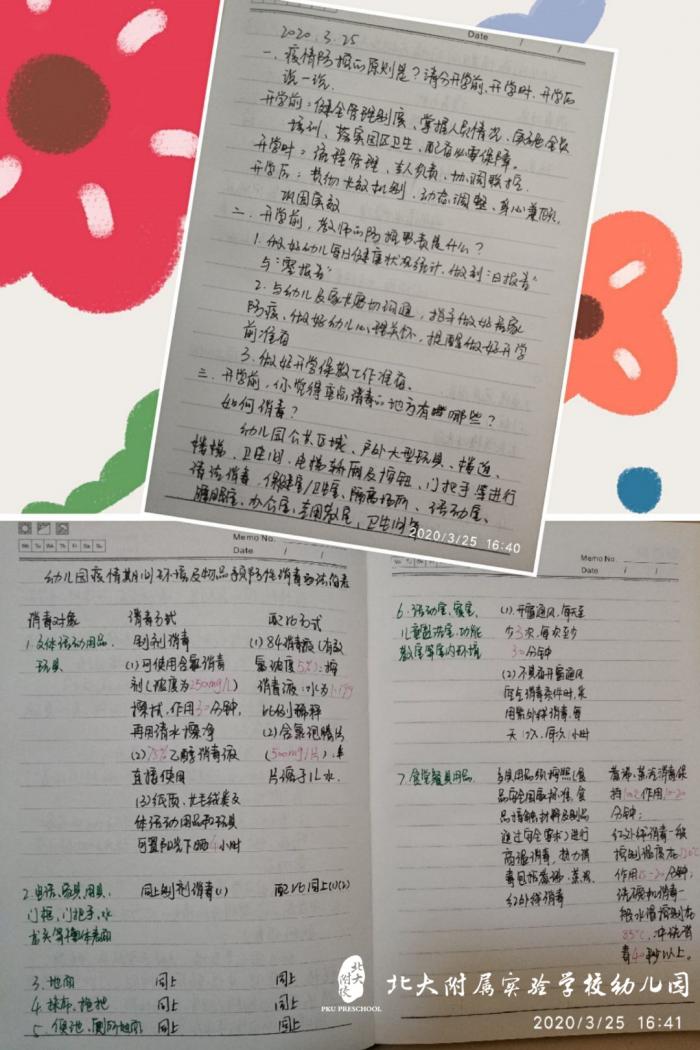 Date
2020.3.25
一、疫情防控的原则是？请分开学前、开学时、开学后
说一说.
开学前：健全管理制度、掌握人员情况、实施全员
培训、落实园区卫生、配备必需保障。
开学时：流程管理、专人负责、协调联控.
开学后：其物卡数机制、动态调整、身心兼顾、
巩固实效
二、开学前，教师的防控职责是什么？
1. 做好幼儿每日健康状况统计，做到"日报告"
与"零报告"
2. 与幼儿及家长密切沟通，指导做好居家
防疫、做好幼儿心理关怀，提醒做好开学
前准备
3. 做好开学保教工作准备、
三、开学前，你觉得重点消毒的地方有哪些？
如何消毒？
幼儿园公共区域、户外大型玩具、楼道、
楼梯、卫生间、电梯轿厢及按钮、门把手等进行
清洁消毒，保健室/卫生室、隔离场所、活动室、
睡眠室、办公室、专用教室、卫生间等
2020/3/25 16:40
Mo Tu We Th Fr Sa Su
Memo No.
Date
幼儿园疫情期间环境及物品预防性消毒方法简表
消毒对象 消毒方式 配比方式
1. 文体活动用品、 制剂消毒 (1) 84消毒液（有效
玩具 (1) 可使用含氯消毒 氯浓度5%）：按
剂（浓度为250mg/L） 消毒液：水为1:199
擦拭，作用30分钟， 比例稀释
再用清水擦净 (2) 含氯泡腾片
(2) 75%乙醇消毒液 (500mg/片)，1
直接使用 片溶于1L水.
(3) 纸质、长毛绒类文
体活动用品和玩具
可置阳光下晒4小时
2. 电话、家具、用具、 同上制剂消毒(1) 配比同上(1)(2)
门框、门把手、水
龙头等物体表面
3. 地面 同上 同上
4. 抹布、拖把 同上 同上
5. 便池、厕所地面 同上 同上
Memo No.
Date
6. 活动室、寝室、 (1). 开窗通风，每天至
儿童盥洗室、功能 少3次，每次至少
教室等室内环境 30分钟
(2) 不具备开窗通风
空气消毒条件时，采
用紫外线消毒，每
天1次、每次1小时
7. 食堂餐具用品 食具用品须按照《食 煮沸、蒸汽消毒保
品安全国家标准 食 持100℃作用10-20
品接触材料及制品 分钟；
通过安全要求》进行 红外线消毒一般
高温消毒，热力消 控制温度在120℃
毒包括煮沸、蒸汽、 作用15-20分钟；
红外线消毒 洗碗机消毒一
般水温控制在
85℃，冲洗消
毒40秒以上。
北大附校
PKU PRESCHOOL
北大附属实验学校幼儿园
2020/3/25 16:41